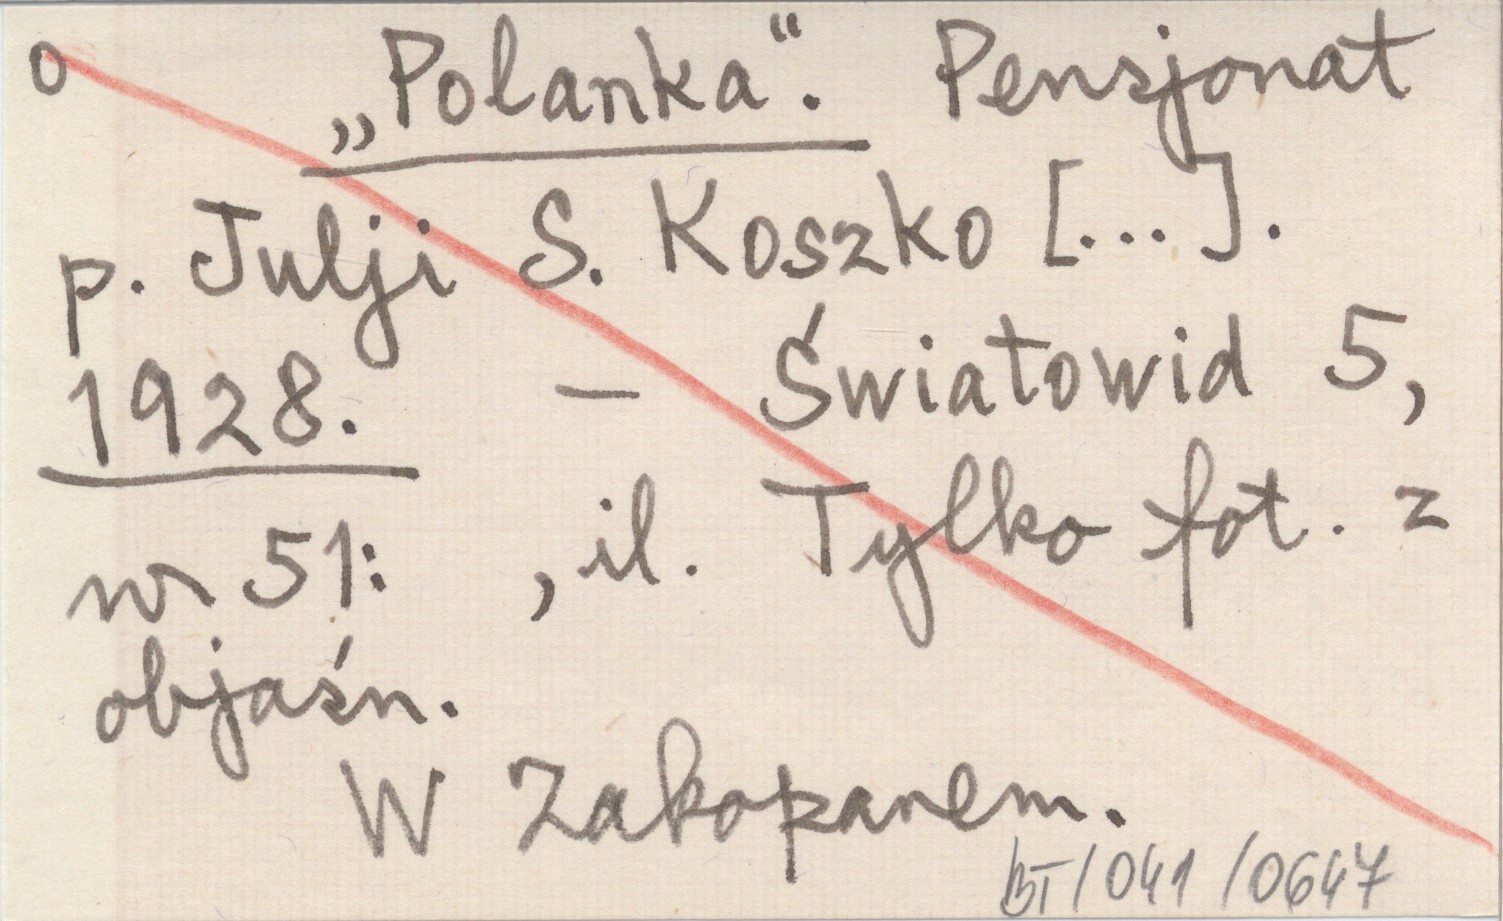 o „Polanka“. Pensjonat
p. Julji S. Koszko [...].
1928. — Światowid 5,
nr 51: , il. Tylko fot. z
objaśn.
W Zakopanem.
BT/041/0647